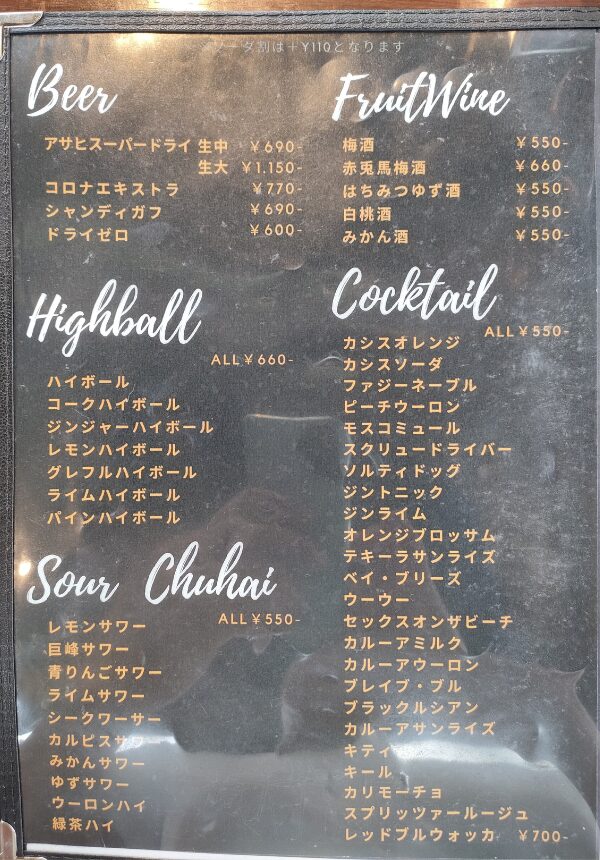 ソーダ割は＋¥110となります
Beer
アサヒスーパードライ 生中 ¥690-
生大 ¥1.150-
コロナエキストラ ¥770-
シャンディガフ ¥690-
ドライゼロ ¥600-
Highball
ALL¥660-
ハイボール
コークハイボール
ジンジャーハイボール
レモンハイボール
グレフルハイボール
ライムハイボール
パインハイボール
Sour Chuhai
ALL¥550-
レモンサワー
巨峰サワー
青りんごサワー
ライムサワー
シークワーサー
カルピスサワー
みかんサワー
ゆずサワー
ウーロンハイ
緑茶ハイ
FruitWine
梅酒 ¥550-
赤兎馬梅酒 ¥660-
はちみつゆず酒 ¥550-
白桃酒 ¥550-
みかん酒 ¥550-
Cocktail
ALL¥550-
カシスオレンジ
カシスソーダ
ファジーネーブル
ピーチウーロン
モスコミュール
スクリュードライバー
ソルティドッグ
ジントニック
ジンライム
オレンジブロッサム
テキーラサンライズ
ベイ・ブリーズ
ウーウー
セックスオンザビーチ
カルーアミルク
カルーアウーロン
ブレイブ・ブル
ブラックルシアン
カルーアサンライズ
キティ
キール
カリモーチョ
スプリッツァールージュ
レッドブルウォッカ ¥700-